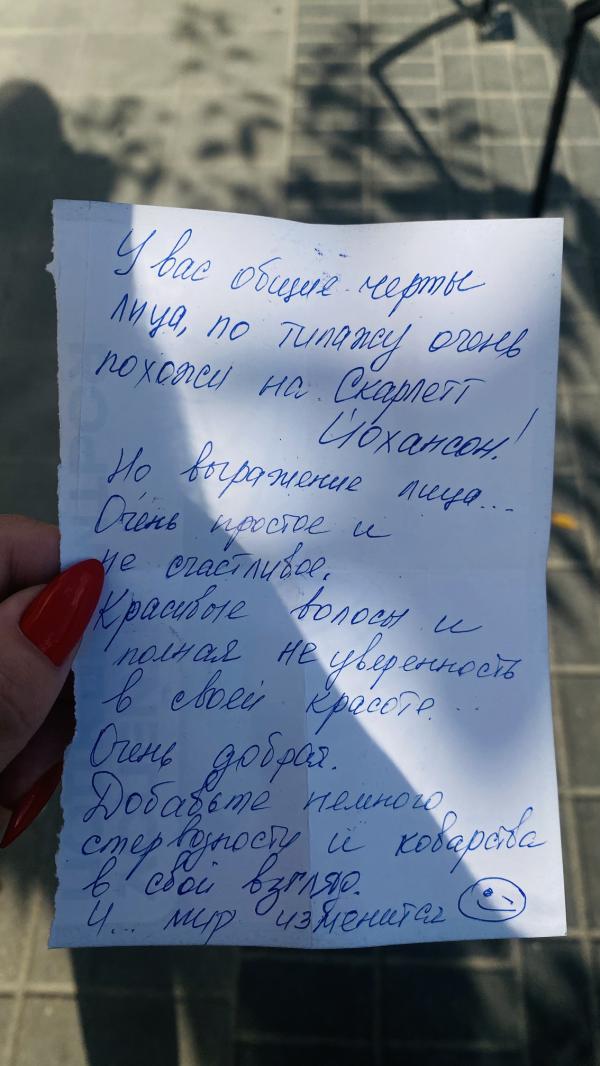 У вас общие черты
лица, по типажу очень
похожи на Скарлетт
Йохансон!
Но выражение лица...
Очень простое и
не счастливое.
Красивые волосы и
полная не уверенность
в своей красоте...
Очень добрая.
Добавьте немного
стервозности и коварства
в свой взгляд.
И... мир изменится